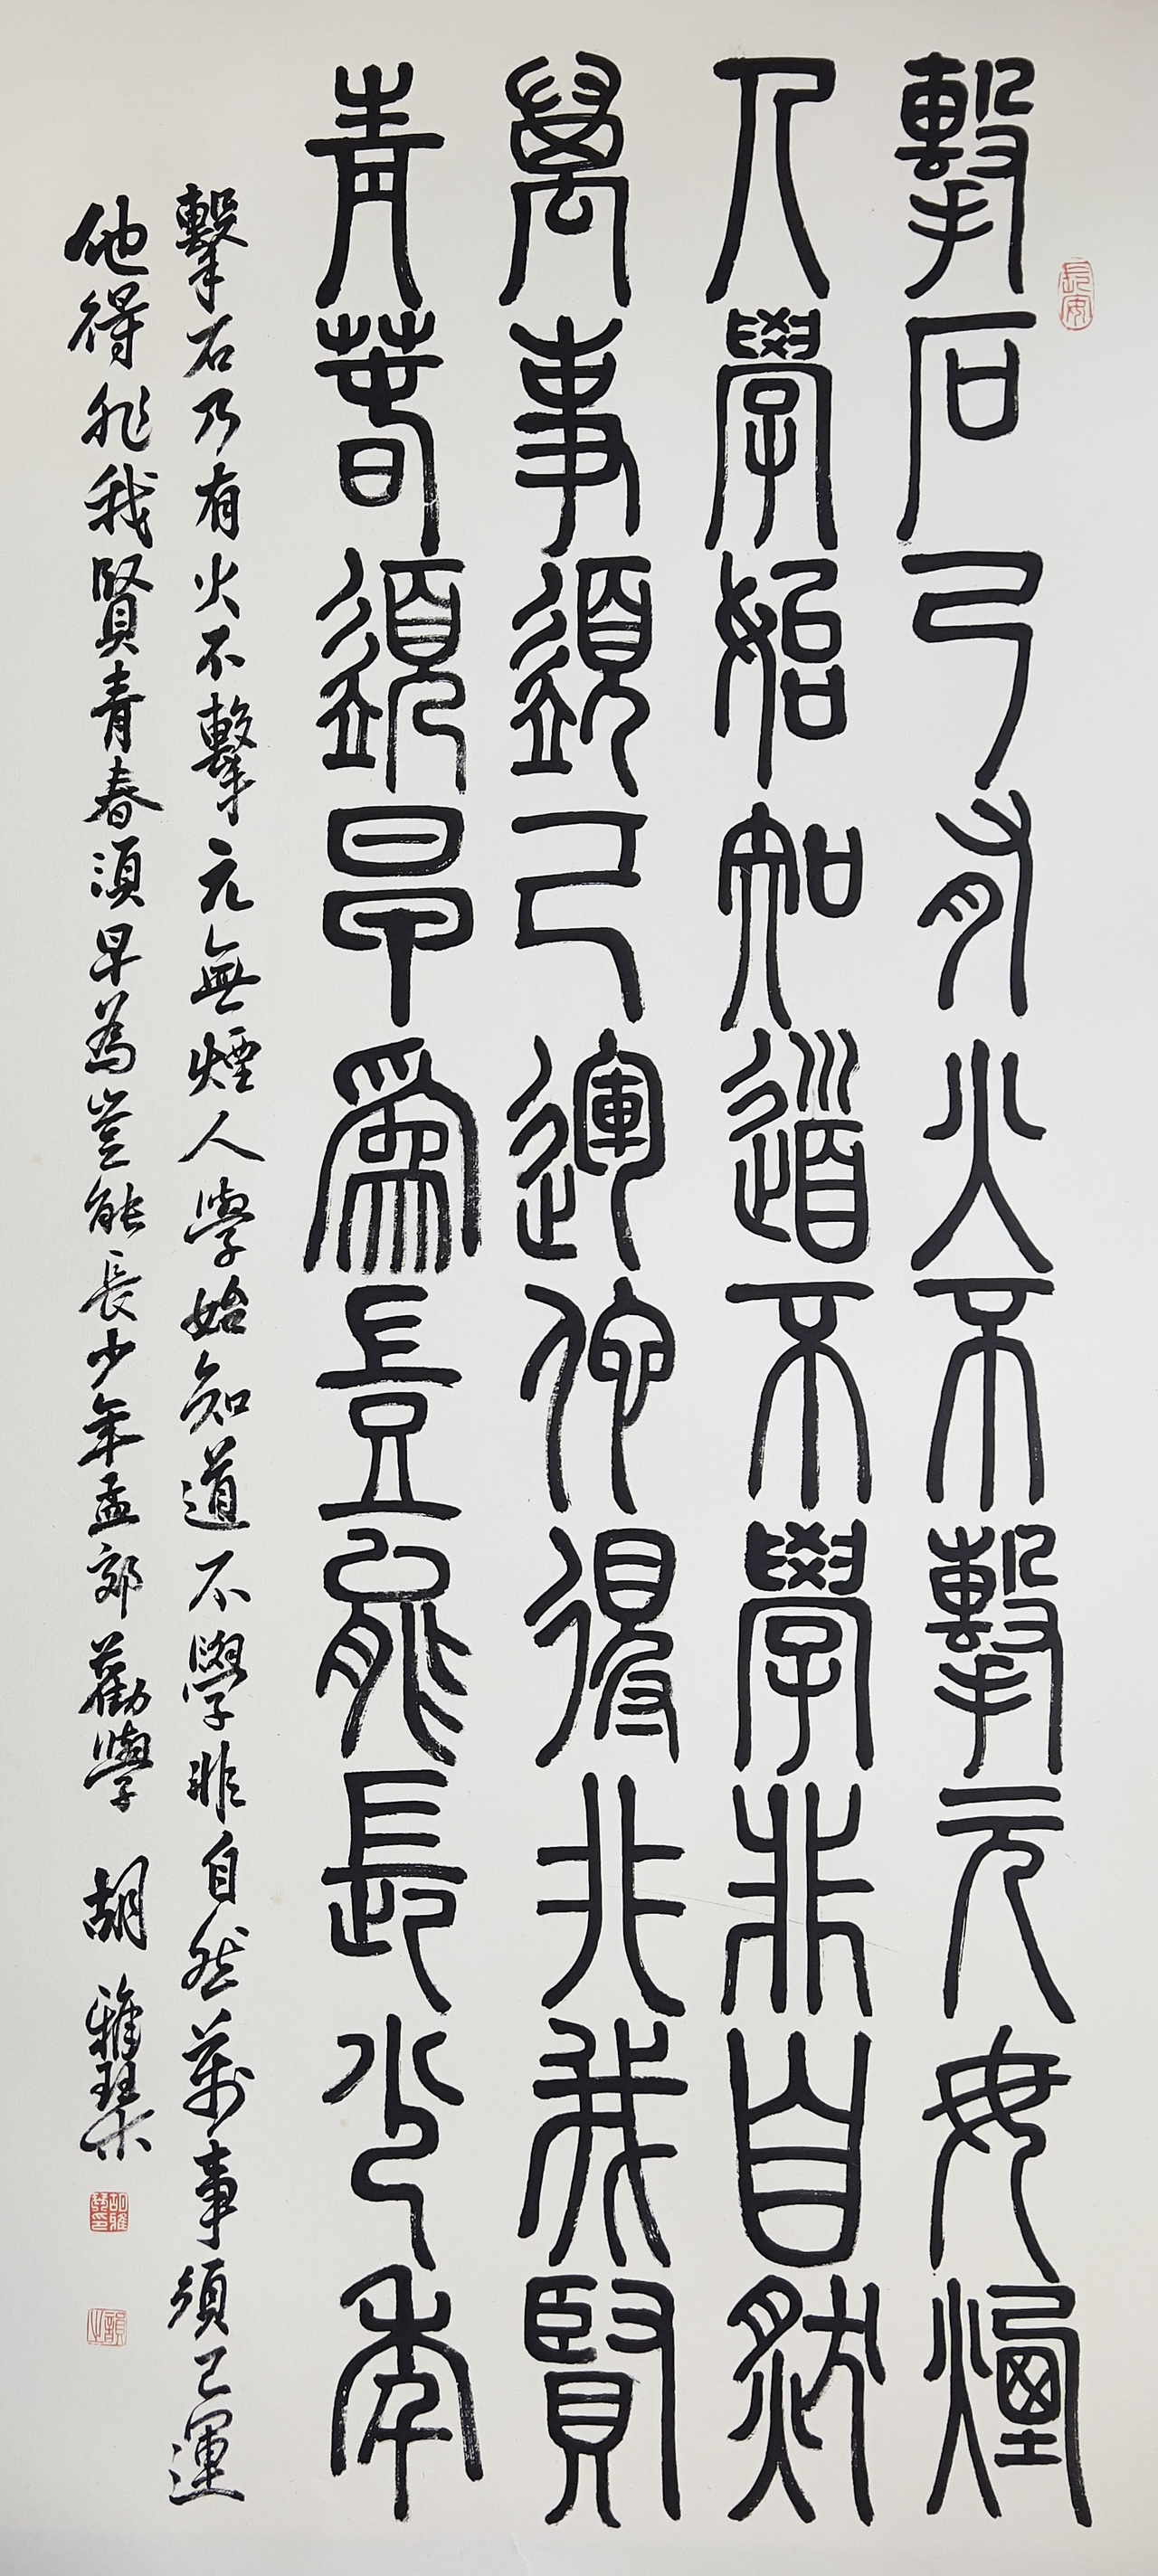 長安
擊石乃有火不擊元毋煙
人學始知道不學非自然
萬事須己運佗得非我賢
青春須早為豈能長少年
擊石乃有火不擊元無煙人學始知道不學非自然萬事須己運
他得非我賢青春須早為豈能長少年孟郊勸學 胡雅琹